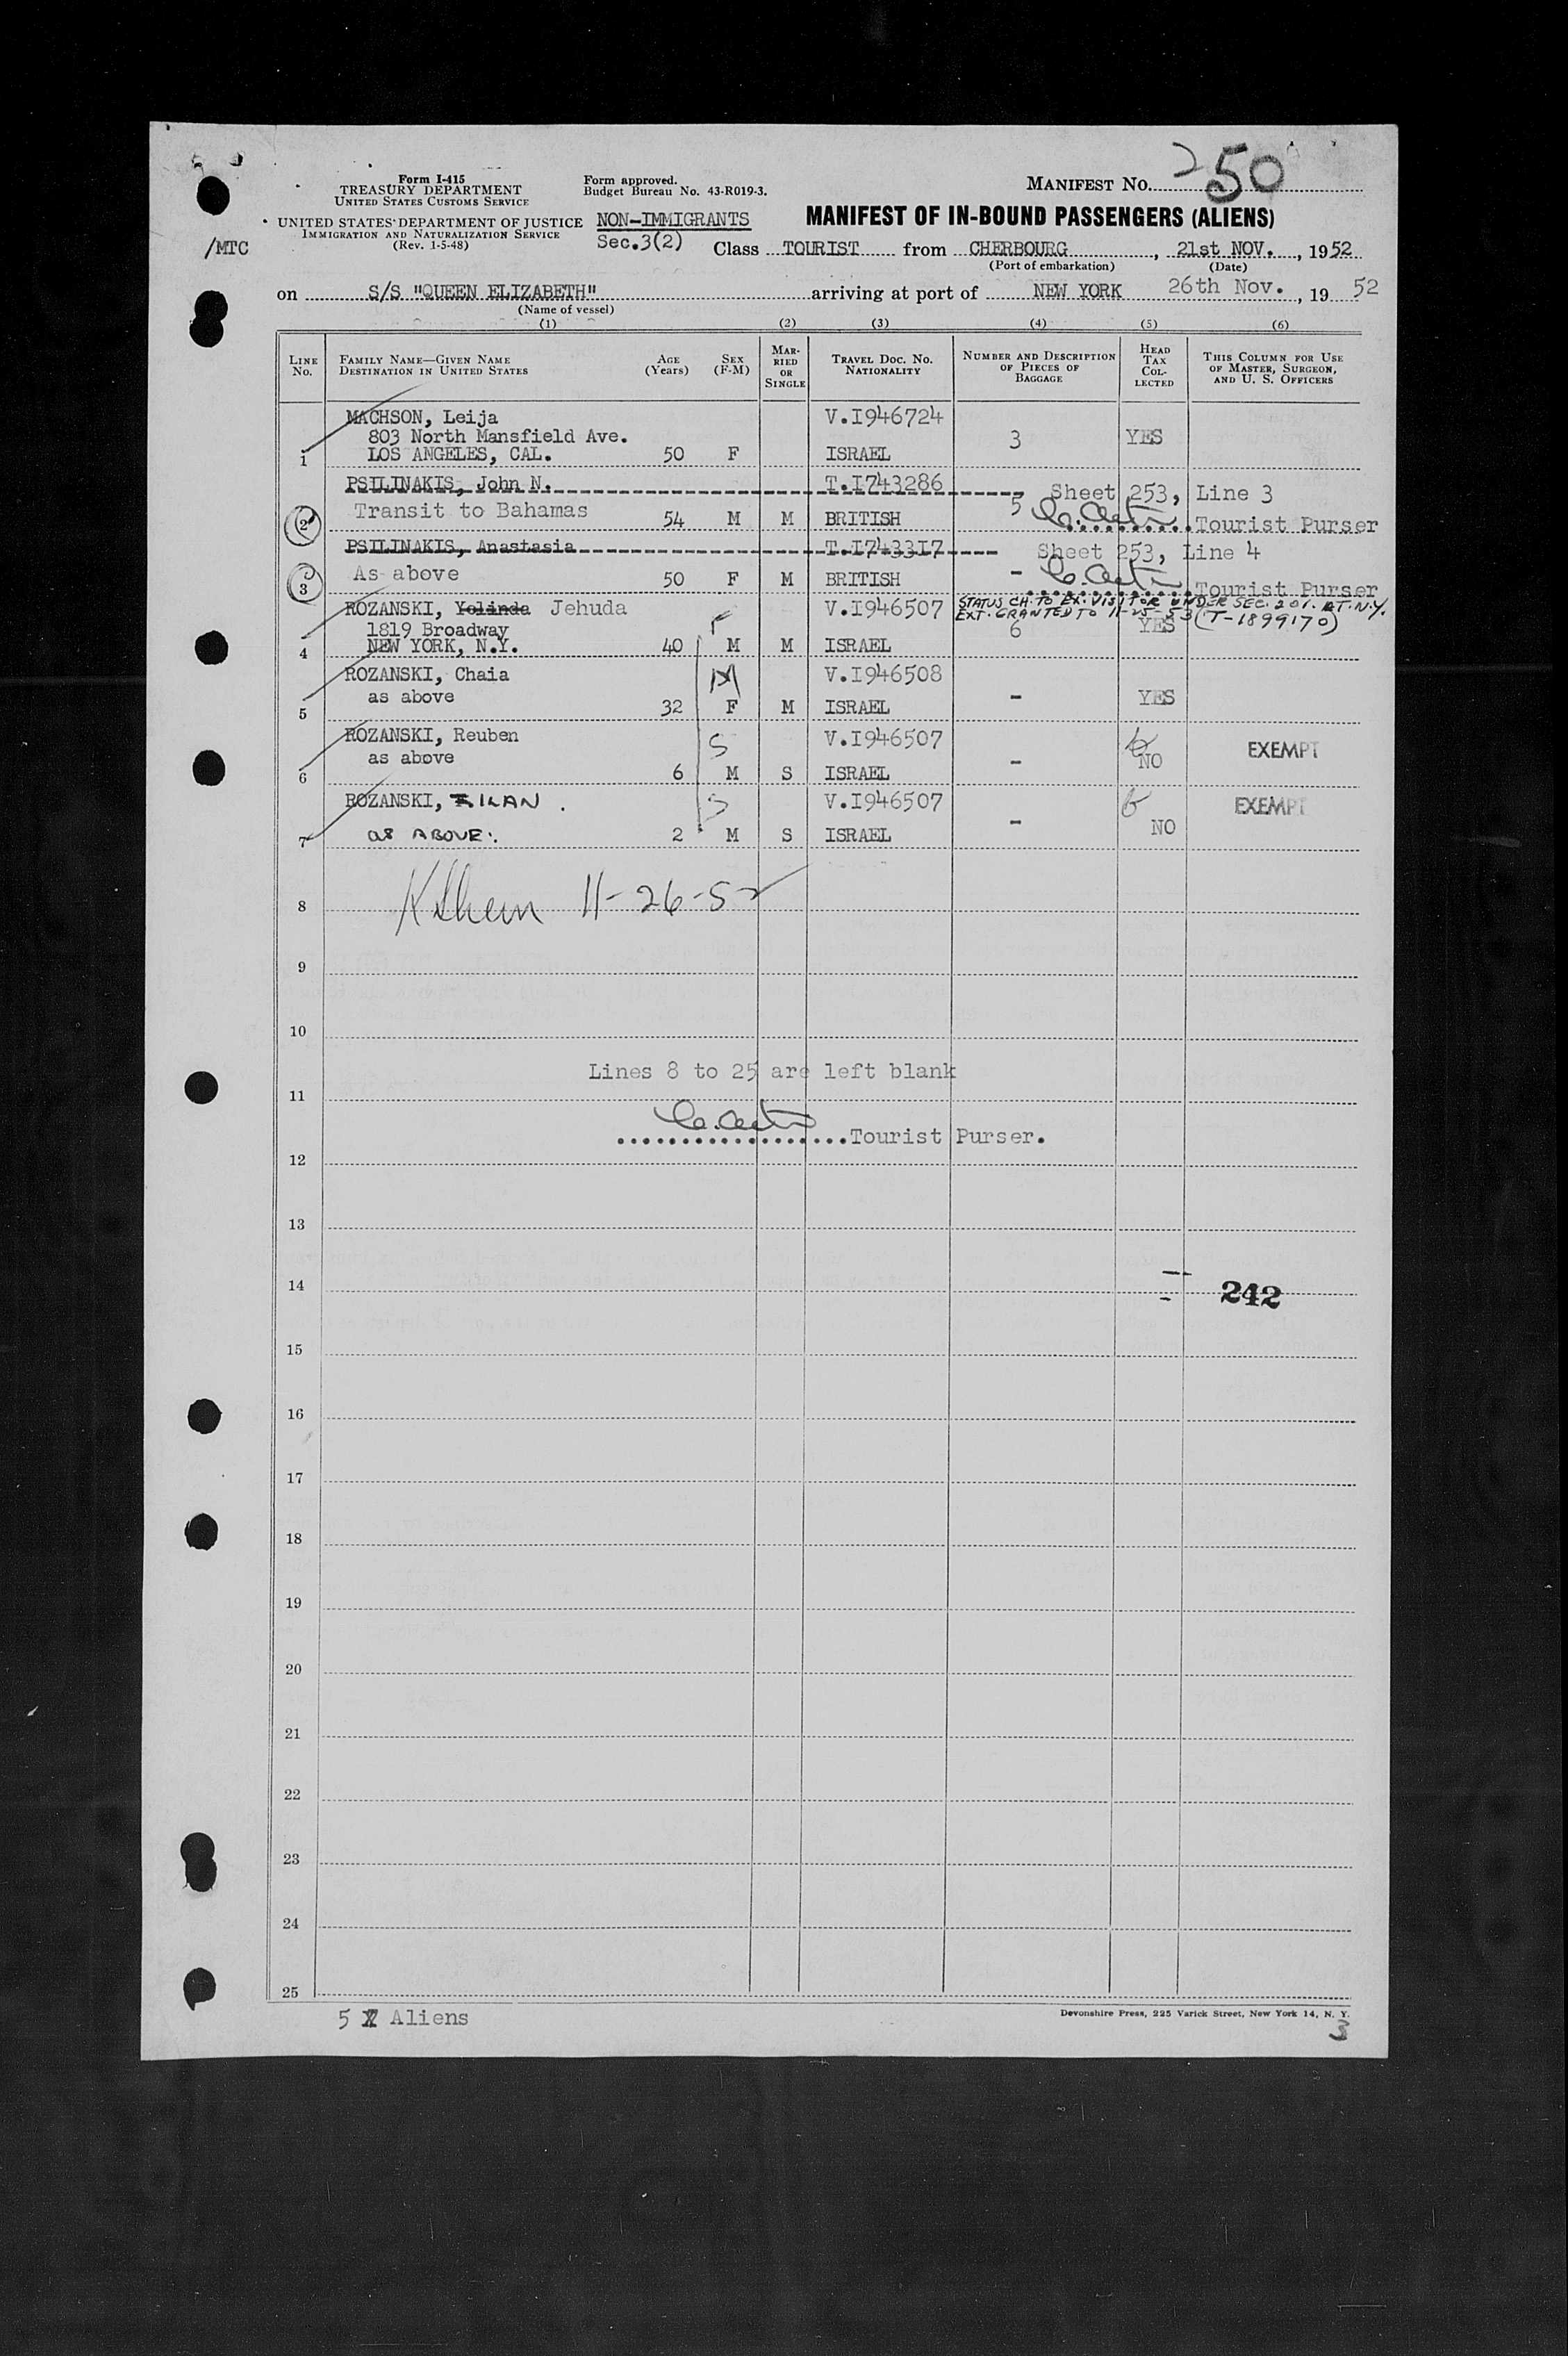 Form I-415
TREASURY DEPARTMENT
UNITED STATES CUSTOMS SERVICE
UNITED STATES DEPARTMENT OF JUSTICE
IMMIGRATION AND NATURALIZATION SERVICE
(Rev. 1-5-48)
/MTC
Form approved.
Budget Bureau No. 43-R019-3.
NON-IMMIGRANTS
Sec.3(2)
MANIFEST No. 250
MANIFEST OF IN-BOUND PASSENGERS (ALIENS)
Class TOURIST from CHERBOURG, 21st NOV., 1952
(Port of embarkation) (Date)
on S/S "QUEEN ELIZABETH" arriving at port of NEW YORK 26th Nov., 19 52
(Name of vessel)
(1) (2) (3) (4) (5) (6)
LINE No. FAMILY NAME—GIVEN NAME DESTINATION IN UNITED STATES AGE (Years) SEX (F-M) MARRIED OR SINGLE TRAVEL DOC. NO. NATIONALITY NUMBER AND DESCRIPTION OF PIECES OF BAGGAGE HEAD TAX COLLECTED THIS COLUMN FOR USE OF MASTER, SURGEON, AND U. S. OFFICERS
MACHSON, Leija V.I946724
803 North Mansfield Ave. 3 YES
1 LOS ANGELES, CAL. 50 F ISRAEL
PSILINAKIS, John N. T.I743286 Sheet 253, Line 3
2 Transit to Bahamas 54 M M BRITISH 5 Tourist Purser
PSILINAKIS, Anastasia T.I743317 Sheet 253, Line 4
3 As above 50 F M BRITISH - Tourist Purser
ROZANSKI, Yolinda Jehuda V.I946507 STATUS CH. TO EX. VISITOR UNDER SEC. 201. AT. N.Y.
EXT. GRANTED TO 11-25-53 (T-1899170)
1819 Broadway 6 YES
4 NEW YORK, N.Y. 40 M M ISRAEL
ROZANSKI, Chaia M V.I946508
as above - YES
5 32 F M ISRAEL
ROZANSKI, Reuben S V.I946507 EXEMPT
as above - NO
6 6 M S ISRAEL
ROZANSKI, ILAN. S V.I946507 EXEMPT
as ABOVE. - NO
7 2 M S ISRAEL
8 11-26-52
9
10
Lines 8 to 25 are left blank
11
Tourist Purser.
12
13
14 242
15
16
17
18
19
20
21
22
23
24
25
5 7 Aliens
Devonshire Press, 225 Varick Street, New York 14, N. Y.
3